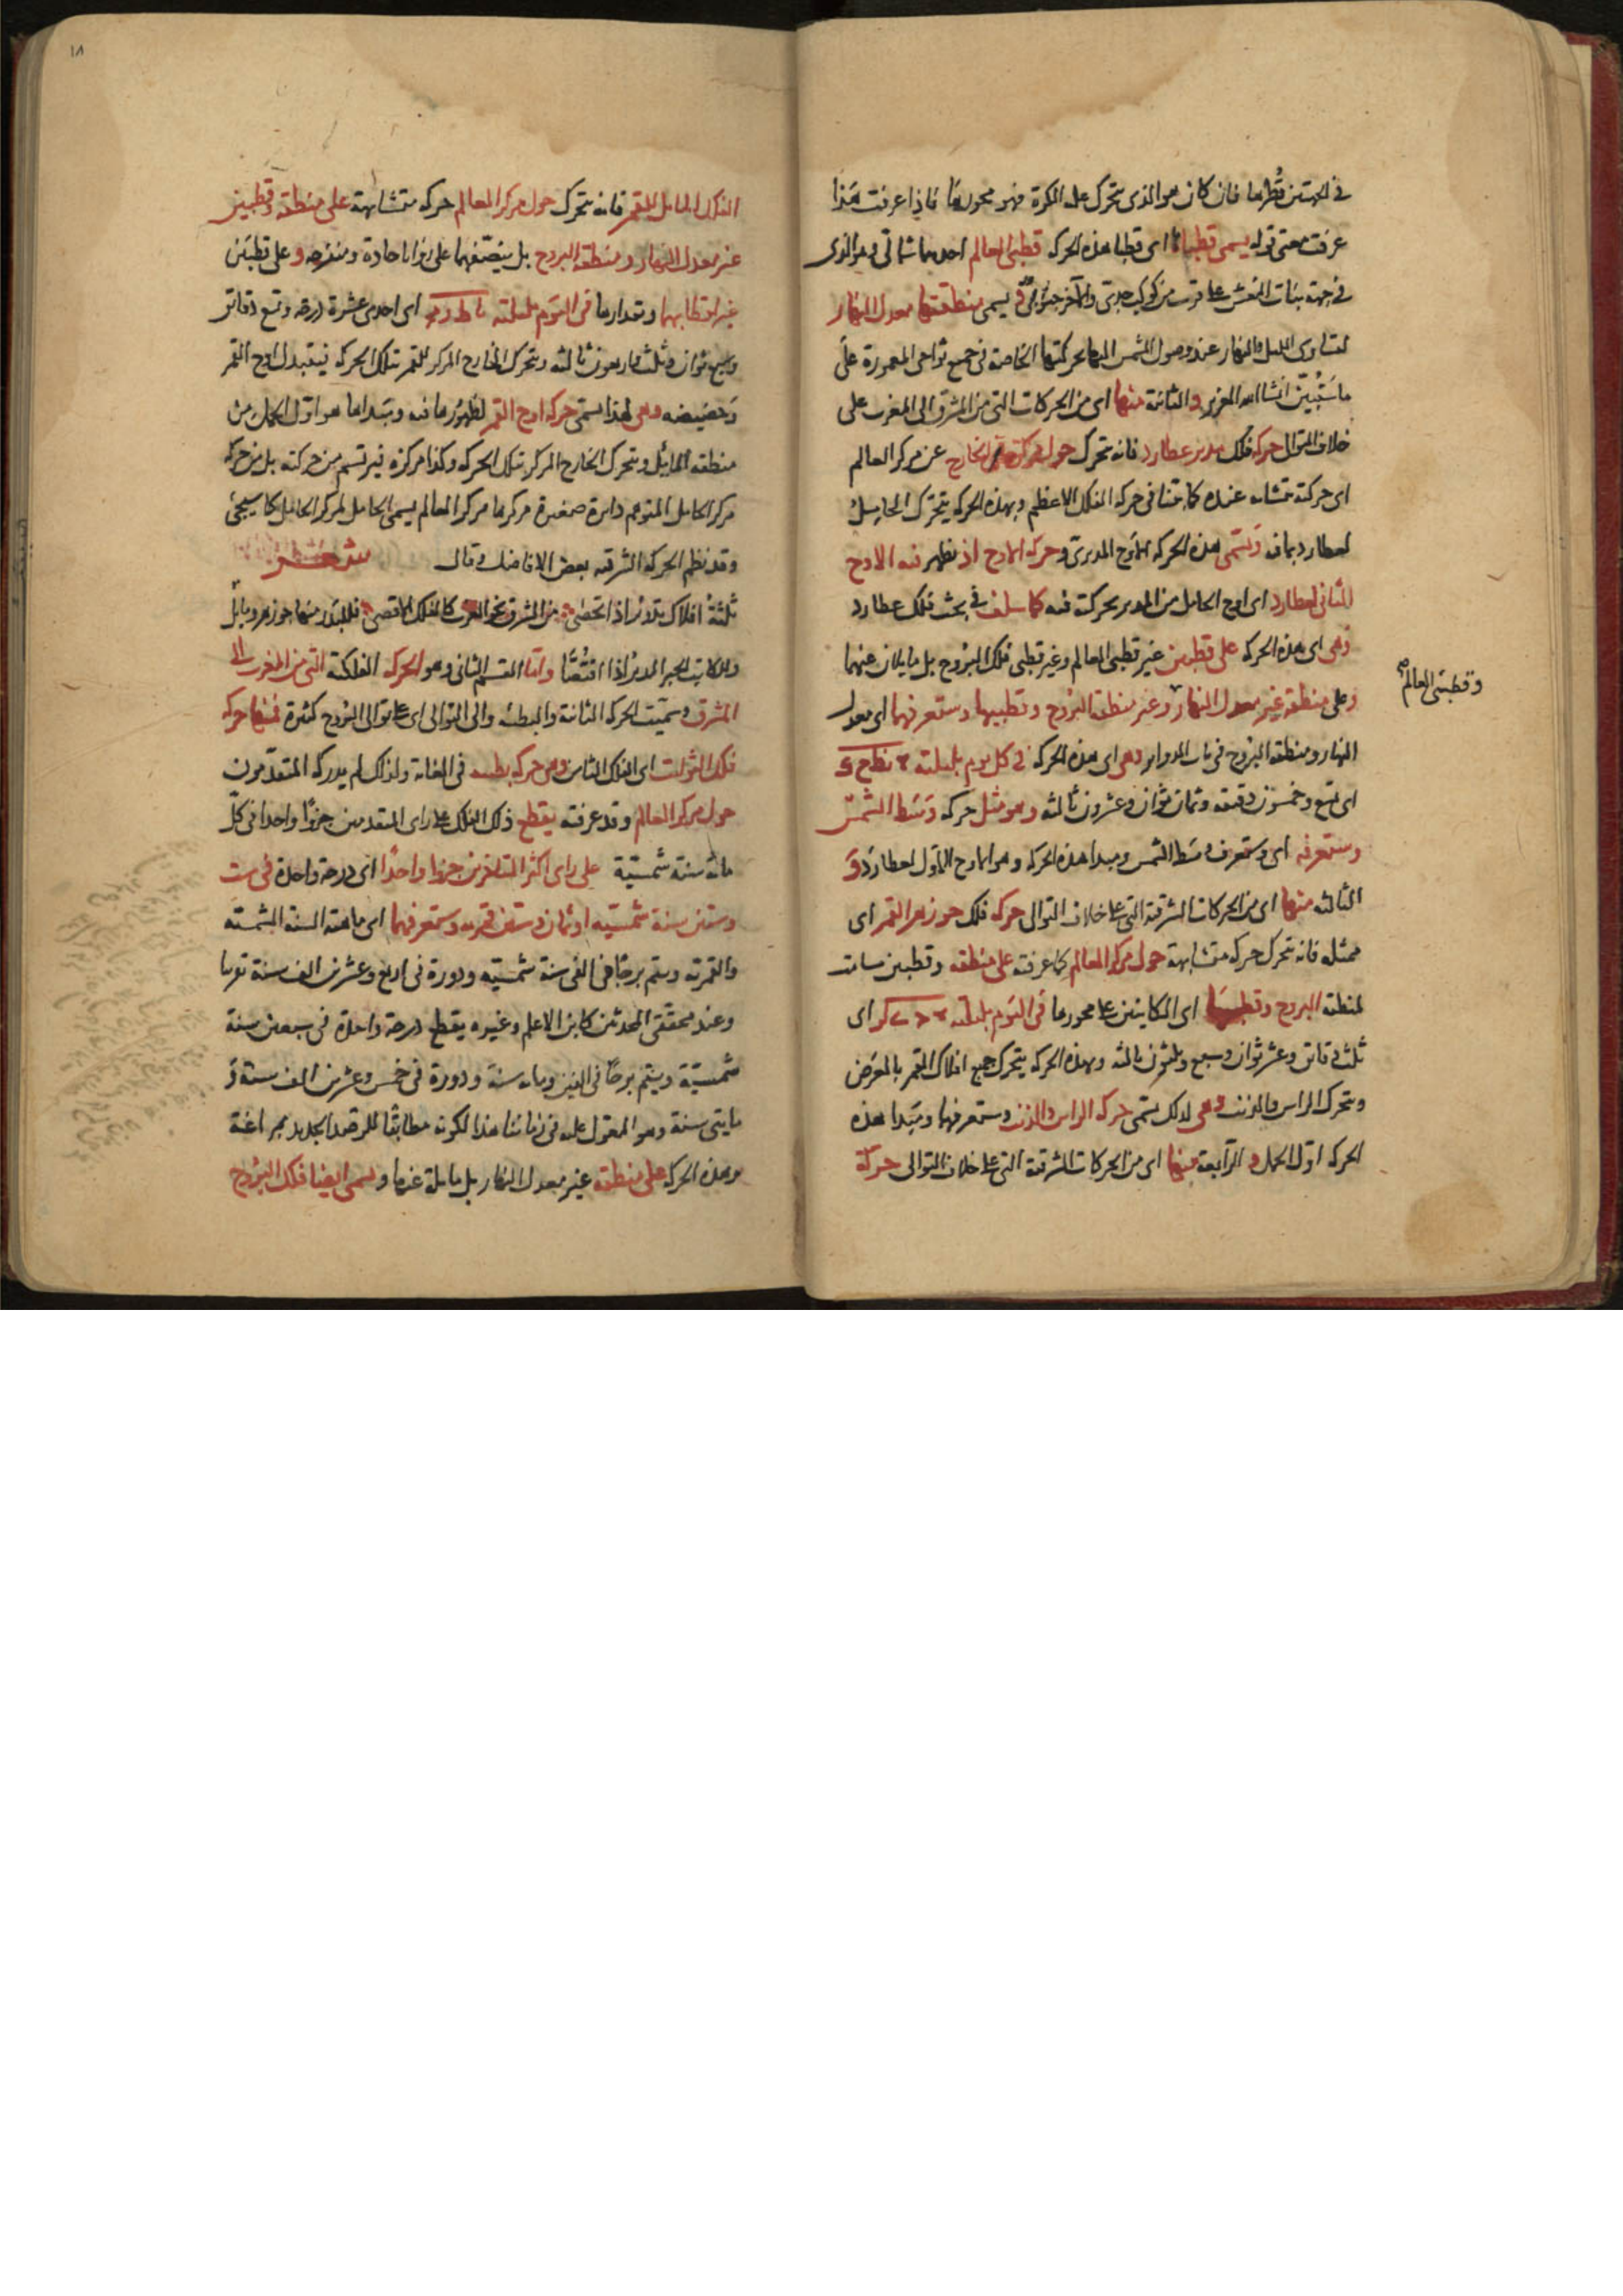 في الجهتين قطرها فان كان هو الذي يتحرك عليه الكرة فهو محورها فاذا عرفت هذا
عرفت معنى قوله يسمى قطباها اى قطبا هذه الحركه قطبى العالم احدهما شمالى وهو الذى
في جهة بنات النعش على قرب من كوكب جدى والآخر جنوبى و يسمى منطقتها معدل النهار
لتساوى الليل والنهار عند وصول الشمس اليها بحركتها الخاصة في جميع نواحى المعمورة على
ما ستبين انشا الله العزيز والثانية منها اى من الحركات التى من المشرق الى المغرب على
خلاف التوالى حركة فلك مدير عطارد فانه يتحرك حول مركزه الخارج عن مركز العالم
اى حركته متشابه عنده كما بينا في حركة الفلك الاعظم وبهذه الحركه يتحرك الحامل
لعطارد بما فيه وتسمى هذه الحركه الاوج المديرى وحركة الاوج اذ تظهر فيه الاوج
الثانى لعطارد اى اوج الحامل من المدير بحركته فيه كما سلف في بحث فلك عطارد
وهى اى هذه الحركه على قطبين غير قطبى العالم وغير قطبى فلك البروج بل مايلان عنهما
وقطبى العالم
وعلى منطقة غير معدل النهار وغير منطقة البروج وقطبيها وستعرفهما اى معدل
النهار ومنطقة البروج في باب الدواير وهى اى هذه الحركه في كل يوم بليلته نط ح ك
اى تسع وخمسون دقيقه وثمان ثوان وعشرون ثالثه وهو مثل حركة وسط الشمس
وستعرفه اى وستعرف وسط الشمس ومبدا هذه الحركه وهو الاوج الاول لعطارد و
الثالثه منها اى من الحركات الشرقية التى على خلاف التوالى حركة فلك جوزهر القمر اى
ممثله فانه يتحرك حركه متشابهة حول مركز العالم كما عرفته على منطقه وقطبين مسامت
لمنطقة البروج وقطبيها اى الكاينين على محورها في اليوم بليلته اى
ثلث دقائق وعشر ثوان وسبع وثلثون ثالثه وبهذه الحركه يتحرك جميع افلاك القمر بالعرض
ويتحرك الراس والذنب وهى لذلك تسمى حركة الراس والذنب وستعرفهما ومبدا هذه
الحركه اول الحمل و الرابعة منها اى من الحركات الشرقية التى على خلاف التوالى حركة
١٨
الفلك المايل للقمر فانه يتحرك حول مركز العالم حركه متشابهة على منطقه وقطبين
غير معدل النهار ومنطقة البروج بل ينصفهما على زوايا حادة ومنفرجه و على قطبين
غير اقطابهما ومقدارها في اليوم بليلته يا ط ز مج اى احدى عشرة درجه وتسع دقائق
وسبع ثوان وثلث واربعون ثالثه ويتحرك الخارج المركز للقمر بتلك الحركه فيتبدل اوج القمر
وحضيضه وهى لهذا يسمى حركة اوج القمر لظهورها فيه ومبداها هو اول الحمل من
منطقة المايل ويتحرك الخارج المركز بتلك الحركه وكذا مركزه فيرتسم من حركته بل من حركة
مركز الحامل المتوهم دائرة صغيرة مركزها مركز العالم يسمى الحامل لمركز الحامل كما سيجئ
وقد نظم الحركة الشرقيه بعض الافاضل وقال شعر
ثلثة افلاك تدور اذا تحصى من المشرق نحو الغرب كالفلك الاقصى فللبدر منها جوزهر ومايل
وللكاتب الحبر المدير اذا اقتصا واما القسم الثانى وهو الحركة الفلكية التى من المغرب الى
المشرق وسميت الحركة الثانية والبطئه والى التوالى اى على توالى البروج كثيرة فمنها حركة
فلك الثوابت اى الفلك الثامن وهى حركة بطيئه في الغاية ولذلك لم يدركه المتقدمون
حول مركز العالم وقد عرفته يقطع ذلك الفلك على راى المتقدمين جزوا واحدا في كل
مائة سنة شمسيّة على راى اكثر المتاخرين جزوا واحدا اى درجة واحدة في ست
وستين سنة شمسيه او ثمان وستين قمريه وستعرفهما اى ماهية السنة الشمسيه
والقمريه ويتم برجا في الفى سنة شمسيه ودورة في اربع وعشرين الف سنة تقريبا
وعند محققى المحدثين كابن الاعلم وغيره يقطع درجة واحدة في سبعين سنة
شمسيّة ويتم برجا في الفين ومائة سنة ودورة في خمس وعشرين الف سنة و
مايتى سنة وهو المعول عليه في زماننا هذا لكونه مطابقا للرصد الجديد بمراغة
وهذه الحركه على منطقه غير معدل النهار بل مايلة عنها و يسمى ايضا فلك البروج